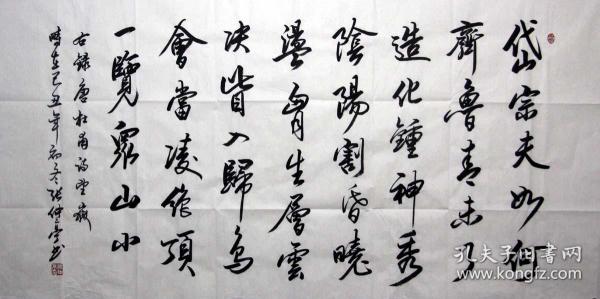 岱宗夫如何
齊魯青未了
造化鍾神秀
陰陽割昏曉
盪胷生層雲
決眥入歸鳥
會當凌絶頂
一覽眾山小
右錄唐杜甫詩望嶽
時在己丑年初冬張仲亭书
孔夫子旧书网
www.kongfz.com